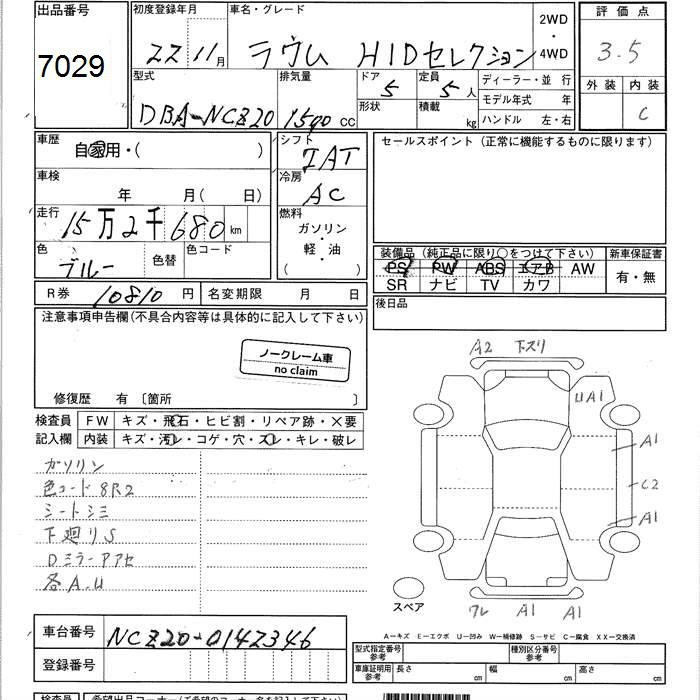 出品番号
7029
初度登録年月
22年11月
車名・グレード
ラウム HIDセレクション
2WD
・
4WD
評価点
3.5
外装 内装
C
型式
DBA-NCZ20
排気量
1500 CC
ドア
5
形状
定員
5人
積載
kg
ディーラー・並行
モデル年式 年
ハンドル 左・右
車歴
自家用・( )
車検
年 月( 日)
走行
15万2千680km
色
ブルー
色替
色コード
シフト
IAT
冷房
AC
燃料
ガソリン
・
軽・油
( )
セールスポイント(正常に機能するものに限ります)
装備品(純正品に限り○をつけて下さい)
PS PW ABS エアB AW
SR ナビ TV カワ
新車保証書
有・無
R券 10810円
名変期限 月 日
後日品
注意事項申告欄(不具合内容等は具体的に記入して下さい)
ノークレーム車
no claim
修復歴 有〔箇所 〕
検査員
記入欄
FW キズ・飛石・ヒビ割・リペア跡・×要
内装 キズ・汚レ・コゲ・穴・スレ・キレ・破レ
ガソリン
色コード8R2
シートシミ
下廻りS
Dミラーアアセ
各A.U
A2 下スリ
UA1
A1
C2
A1
ワレ A1 A1
スペア
A－キズ E－エクボ U－凹み W－補修跡 S－サビ C－腐食 XX－交換済
車台番号 NCZ20-0142346
登録番号
型式指定番号
参考
種別区分番号
参考
車庫証明用
参考
長さ
cm
幅
cm
高さ
cm
検査員
希望出品コーナー(ご希望のコーナー名を記入して下さい)